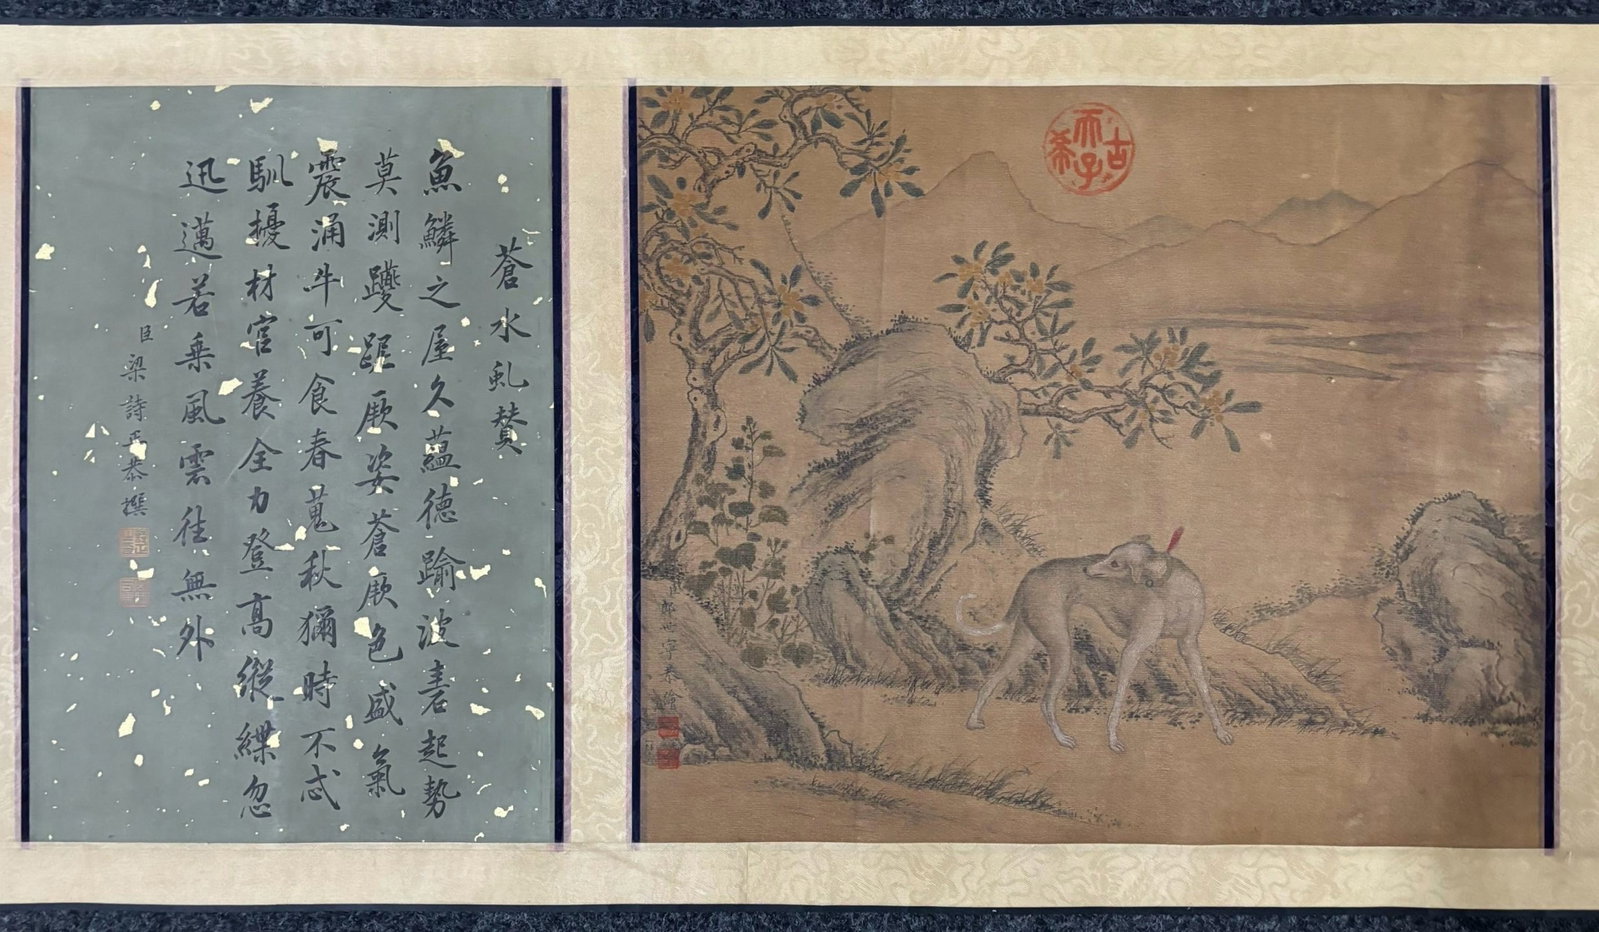 古希天子
臣郎世寧恭繪
蒼水虬賛
魚鱗之屋久蘊德踰波起勢
莫測躨跜厥姿蒼厥色盛氣
震涌牛可食春蒐秋獮時不忒
馴擾材官養全力登高縱緤忽
迅邁若乘風雲往無外
臣梁詩正恭撰